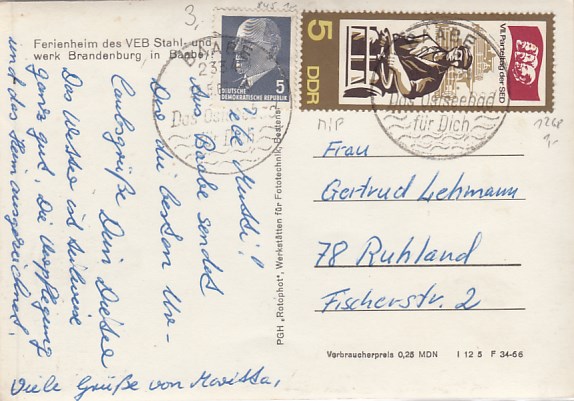 3,
845
Ferienheim des VEB Stahl- und
werk Brandenburg in Baabe
BAABE
Das Ostseebad
für Dich
5
DEUTSCHE
DEMOKRATISCHE REPUBLIK
5
DDR
VII. Parteitag der SED
BAABE
Das Ostseebad
für Dich
M/P
Mutti!
Aus Baabe sendet
Dir die besten Ur-
laubsgrüße Dein Dieter
Das Wetter ist teilweise
ganz gut, die Verpflegung
und das Heim ausgezeichnet.
Viele Grüße von
PGH „Rotophot", Werkstätten für Fototechnik, Bestensee
Frau
Gertrud Lehmann
78 Ruhland
Fischerstr. 2
Verbraucherpreis 0,25 MDN I 12 5 F 34-66